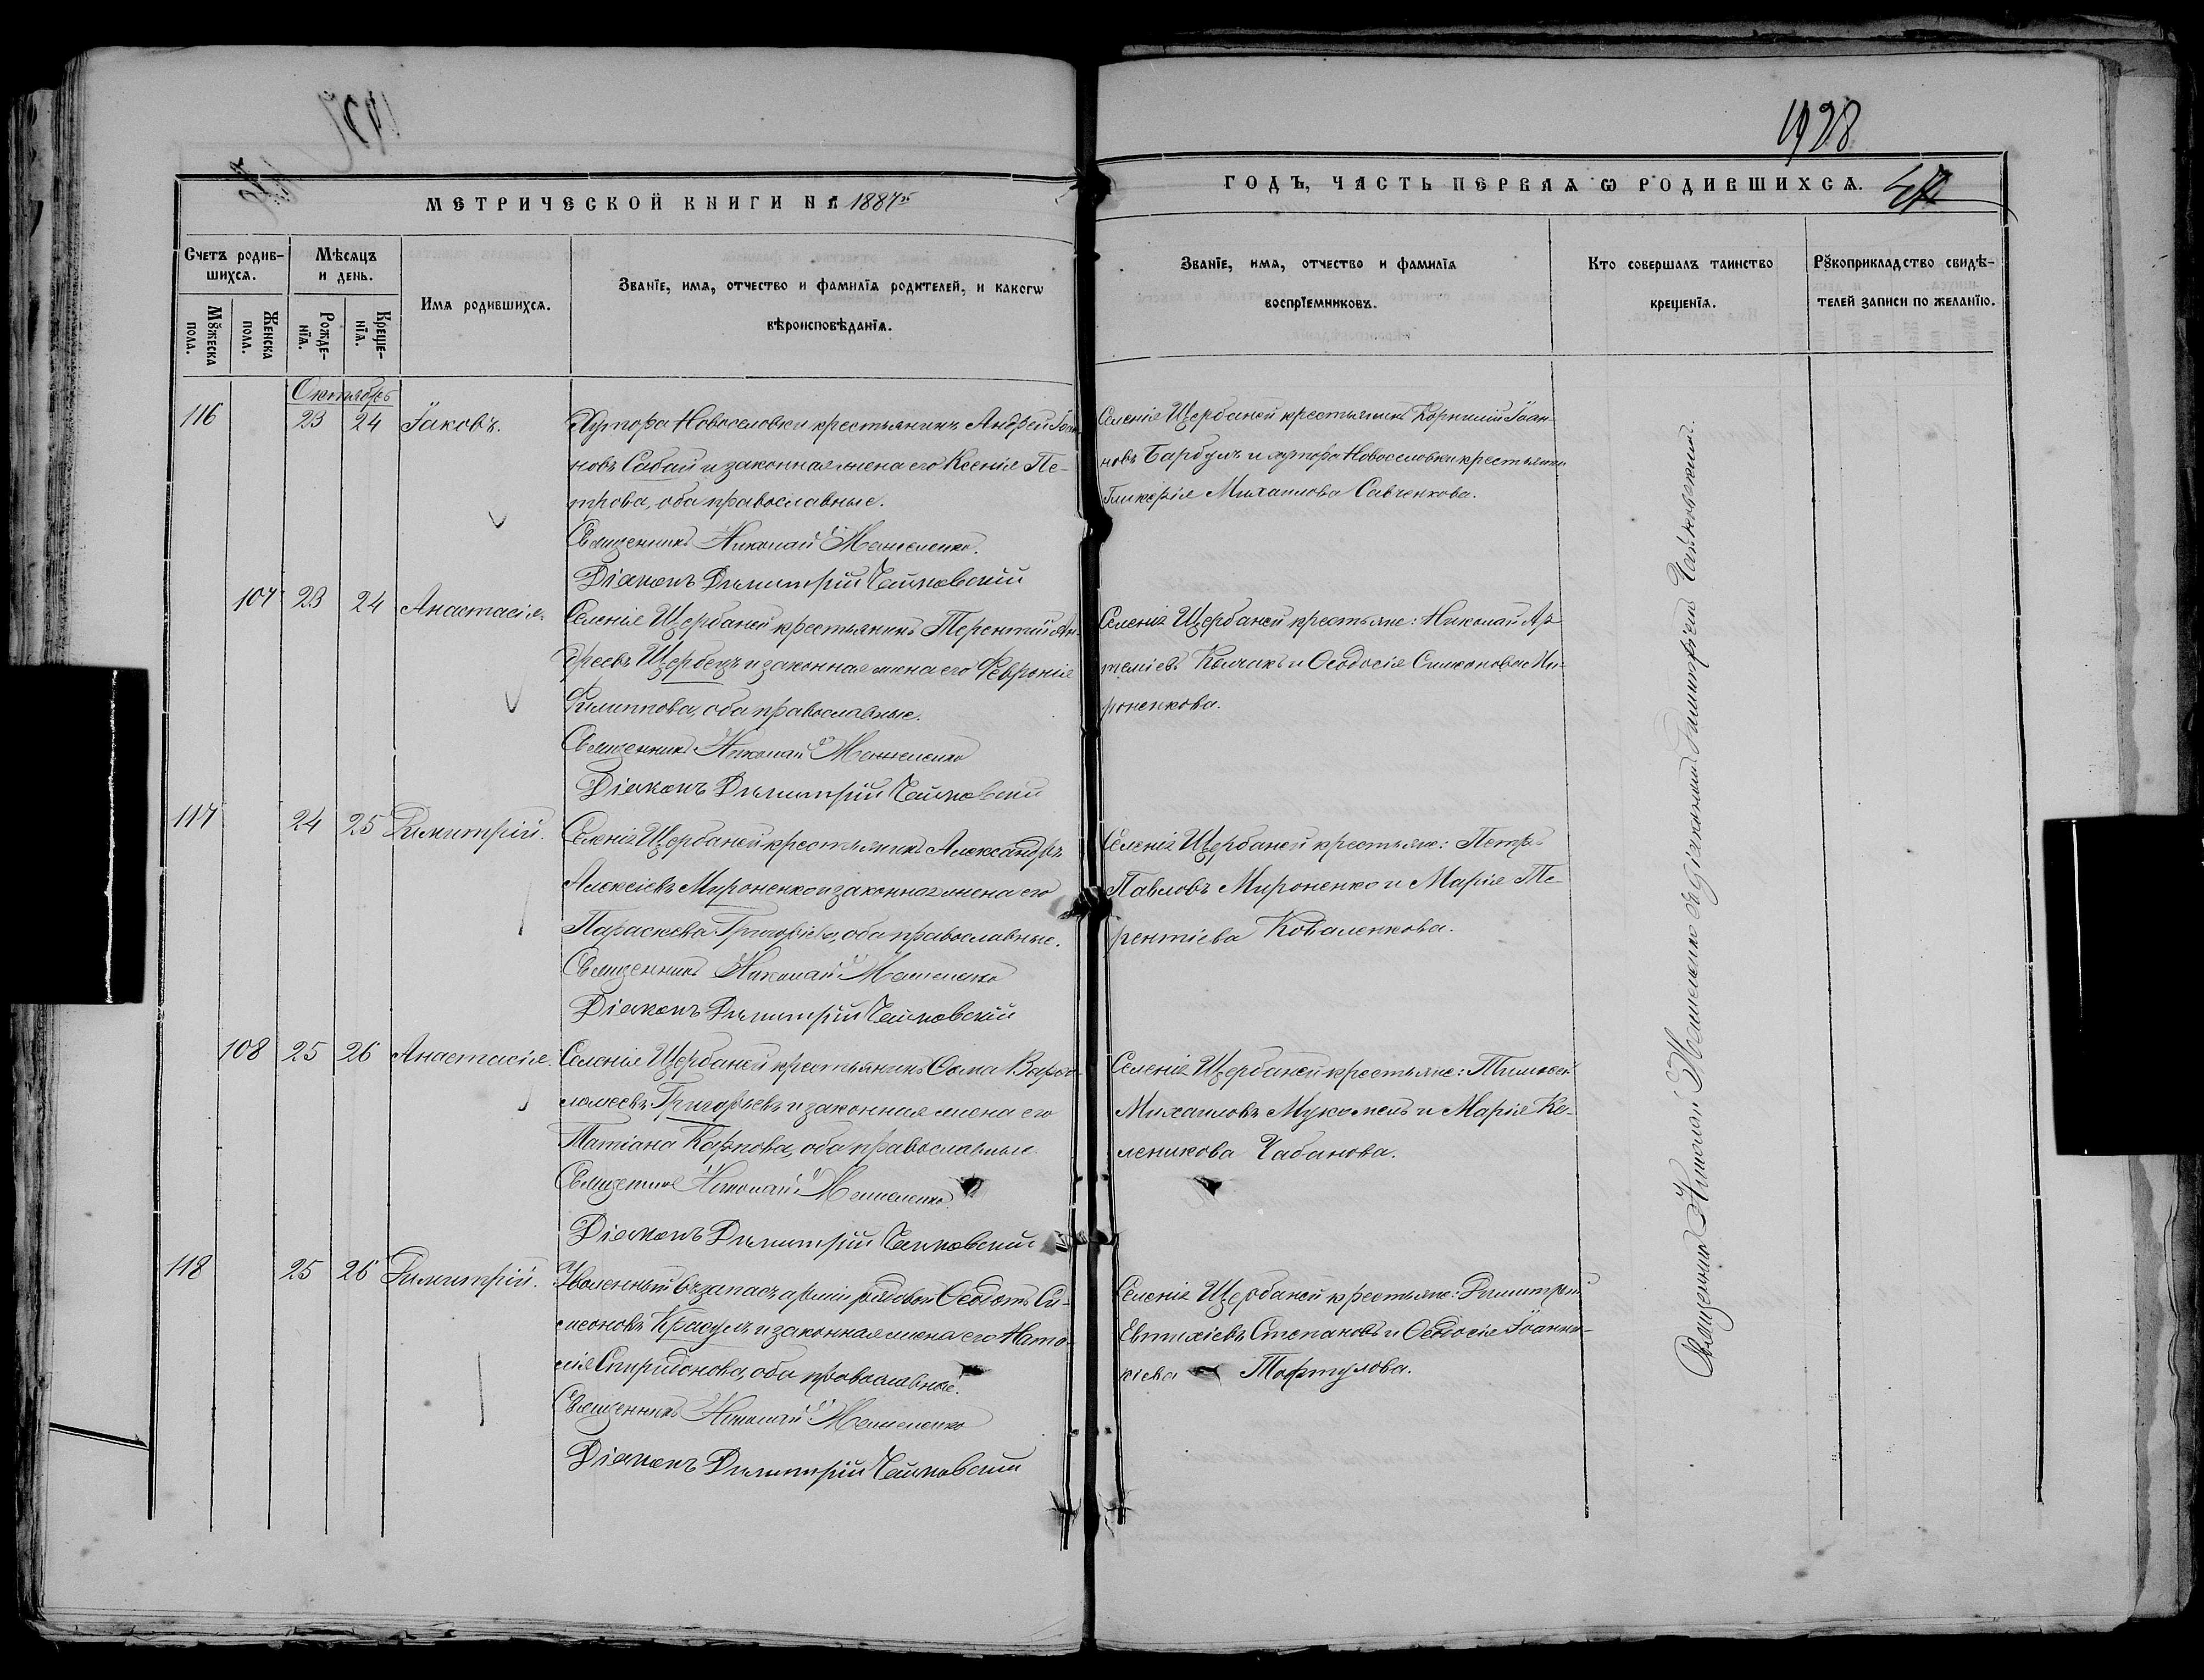 1928
МЕТРИЧЕСКОЙ КНИГИ НА 1887й
ГОДЪ, ЧАСТЬ ПЕРВАЯ Ѡ РОДИВШИХСЯ.
Счетъ родив-
шихся.
Мѣсяцъ
и день.
Мꙋжеска
пола.
Женска
пола.
Рожде-
нїя.
Креще-
нїя.
Имя родившихся.
Званїе, имя, отчество и фамилїя родителей, и какогѡ
вѣроисповѣданїя.
Званїе, имя, отчество и фамилїя
воспрїемниковъ.
Кто совершалъ таинство
крещенїя.
Рꙋкоприкладство свидѣ-
телей записи по желанїю.
Октябрь
116 23 24 Іаковъ.
Хутора Новоселовки крестьянинъ Андрей Іоан-
новъ Сабай и законная жена его Ксенія Пе-
трова, оба православные.
Священникъ Николай
Діаконъ Димитрій Чайковскій
Селенія Щербаней крестьянинъ Корнилій Іоан-
новъ Барбулъ и хутора Новоселовки крестьянка
Гликерія Михаилова Савченкова.
107 23 24 Анастасія.
Селенія Щербаней крестьянинъ Терентій Ан-
дреевъ Щербецъ и законная жена его Февронія
Филиппова, оба православные.
Священникъ Николай
Діаконъ Димитрій Чайковскій
Селенія Щербаней крестьяне: Николай Ар-
теміевъ Колчакъ и Ѳеодосія Симонова Ми-
роненкова.
117 24 25 Димитрій.
Селенія Щербаней крестьянинъ Александръ
Алексіевъ Мироненко и законная жена его
Параскева Григоріева, оба православные.
Священникъ Николай
Діаконъ Димитрій Чайковскій
Селенія Щербаней крестьяне: Петръ
Павловъ Мироненко и Марія Те-
рентіева Коваленкова.
108 25 26 Анастасія.
Селенія Щербаней крестьянинъ Ѳома Варѳо-
ломеевъ Григорьевъ и законная жена его
Татіана Карпова, оба православные.
Священникъ Николай
Діаконъ Димитрій Чайковскій
Селенія Щербаней крестьяне: Тимоѳей
Михаиловъ Мукомелъ и Марія Ка-
леникова Чабанова.
118 25 26 Димитрій.
Уволенный въ запасъ арміи рядовой Ѳеодотъ Си-
меоновъ Красулъ и законная жена его Ната-
лія Спиридонова, оба православные.
Священникъ Николай
Діаконъ Димитрій Чайковскій
Селенія Щербаней крестьяне: Димитрій
Евтихіевъ Степановъ и Ѳеодосія Іоанни-
кіева Тафтулова.
Священникъ Николай съ діакономъ Димитріемъ Чайковскимъ.